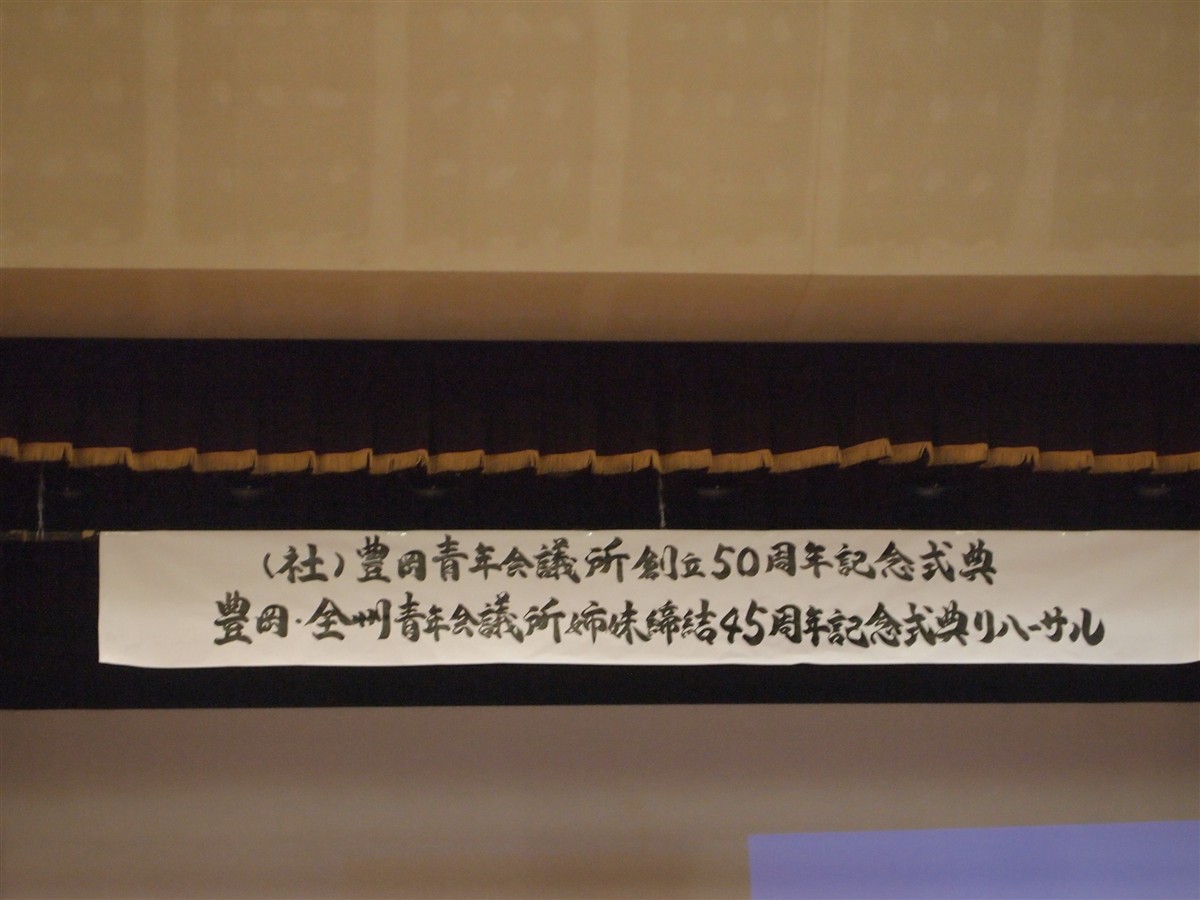 (社)豊岡青年会議所創立50周年記念式典
豊岡・全州青年会議所姉妹締結45周年記念式典リハーサル